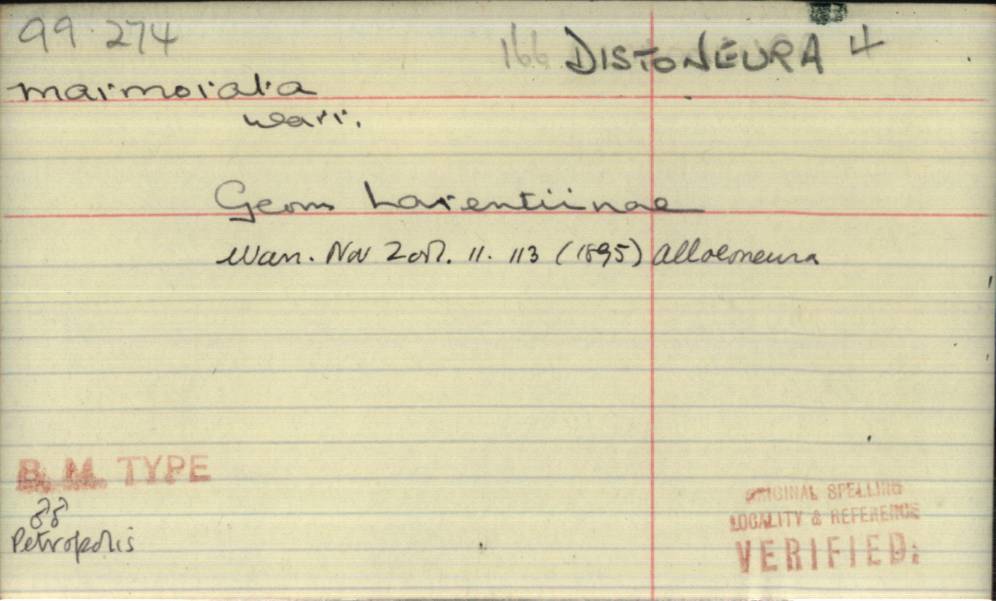 99.274
166 DISTONEURA 4
marmorata
Warr.
Geom Larentiinae
Warr. Nov Zool. 11. 113 (1895) Alloeoneura
B. M. TYPE
♂♂
Petropolis
ORIGINAL SPELLING
LOCALITY & REFERENCE
VERIFIED: